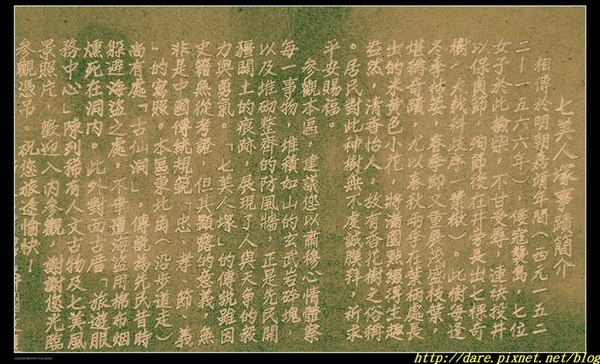 七美人塚事蹟簡介
相傳於明朝嘉靖年間（西元一五二
二｜一五六六年），倭寇襲島，七位
女子於此撿柴，不甘受辱，連袂投井
以保貞節，殉節後在井旁長出七棵奇
樹（大戟科歧序一葉楸）。此樹每逢
冬季枯萎，春季即又重展茂盛枝葉，
堪稱奇蹟，尤以春秋兩季在葉柄處長
出的米黃色小花，將滿園點綴得生趣
盎然，清香怡人，故有香花樹之俗稱
。居民對此神樹無不虔誠膜拜，祈求
平安賜福。
參觀本區，建議您以肅穆心情體察
每一事物，堆積如山的玄武岩碎塊，
以及堆砌整齊的防風牆，正是先民開
疆闢土的痕跡，展現了人與天爭的毅
力與勇氣。「七美人塚」的傳說雖因
史籍無從考據，但其顯露的意義，無
非是中國傳統規範「忠、孝、節、義
」的寫照。本區東北角（沿步道走）
尚有處「古仙洞」，傳說為先民昔時
躲避海盜之處，不幸遭海盜用棉布烟
燻死在洞內。此外對面古厝「旅遊服
務中心」陳列稀有人文古物及七美風
景照片，歡迎入內參觀，謝謝您光臨
參觀憑弔。祝您旅途愉快！
http://dare.pixnet.net/blog